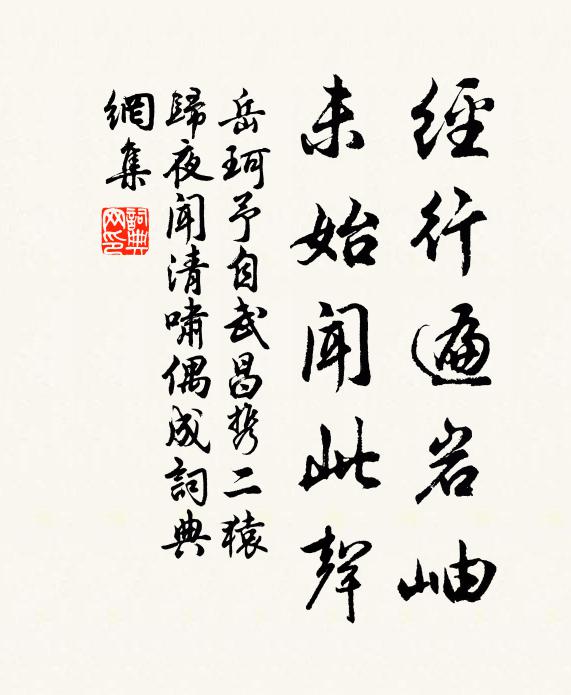 經行遍岩岫
未始聞此聲
岳珂予自武昌携二猿
歸夜聞清嘯偶成詞典
網集
詞典网印